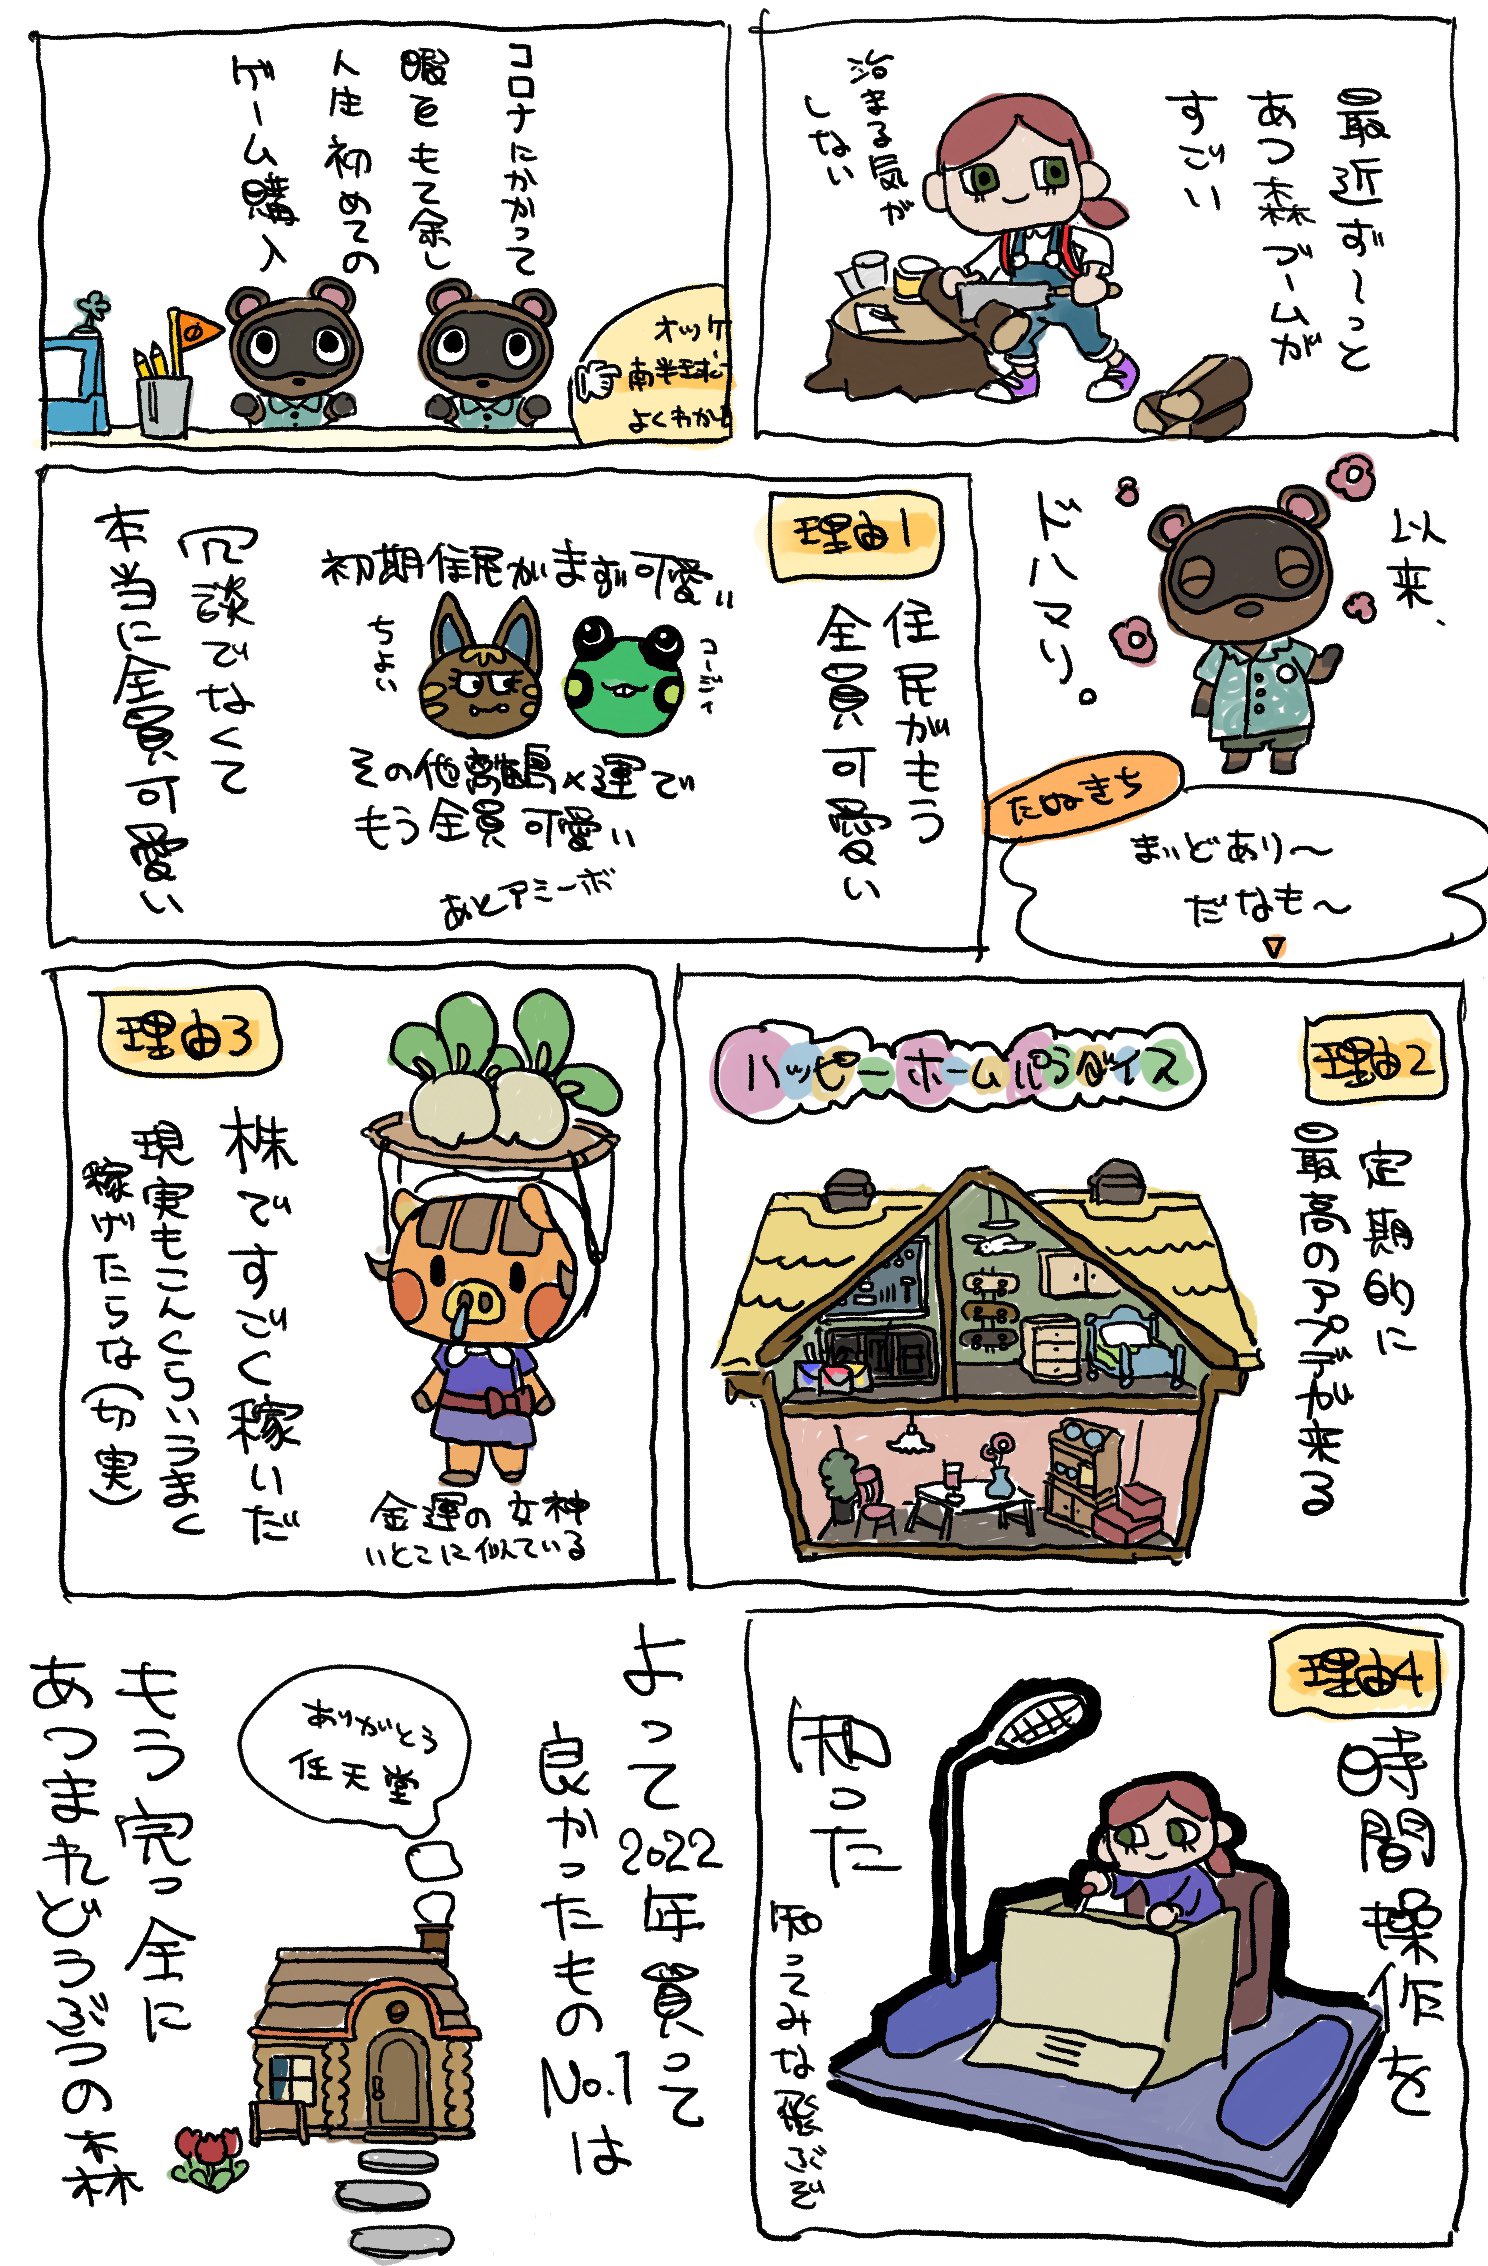 最近ず〜っと
あつ森ブームが
すごい
治まる気が
しない
コロナにかかって
暇をもて余し
人生初めての
ゲーム購入
オッケ
南半球で
よくわか
以来、
ドハマり。
たぬきち
まいどあり〜
だなも〜
理由1
住民がもう
全員可愛い
初期住民がまず可愛い
ちょい
その他離島×運で
もう全員可愛い
あとアミーボ
冗談でなくて
本当に全員可愛い
理由2
定期的に
最高のアプデが来る
ハッピーホームパラダイス
理由3
株ですごく稼いだ
現実もこんくらいうまく
稼げたらな(切実)
金運の女神
いとこに似ている
理由4
時間操作を
知った
知ってみな飛ぶぞ
よって2022年買って
良かったものNo.1は
ありがとう
任天堂
もう完っ全に
あつまれどうぶつの森